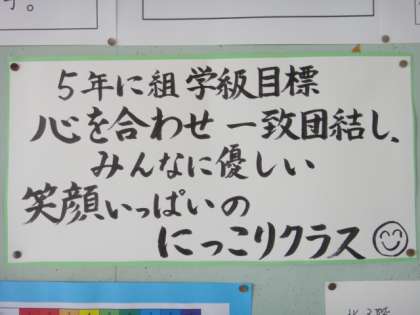 5年に組 学級目標
心を合わせ 一致団結し、
みんなに優しい
笑顔いっぱいの
にっこりクラス